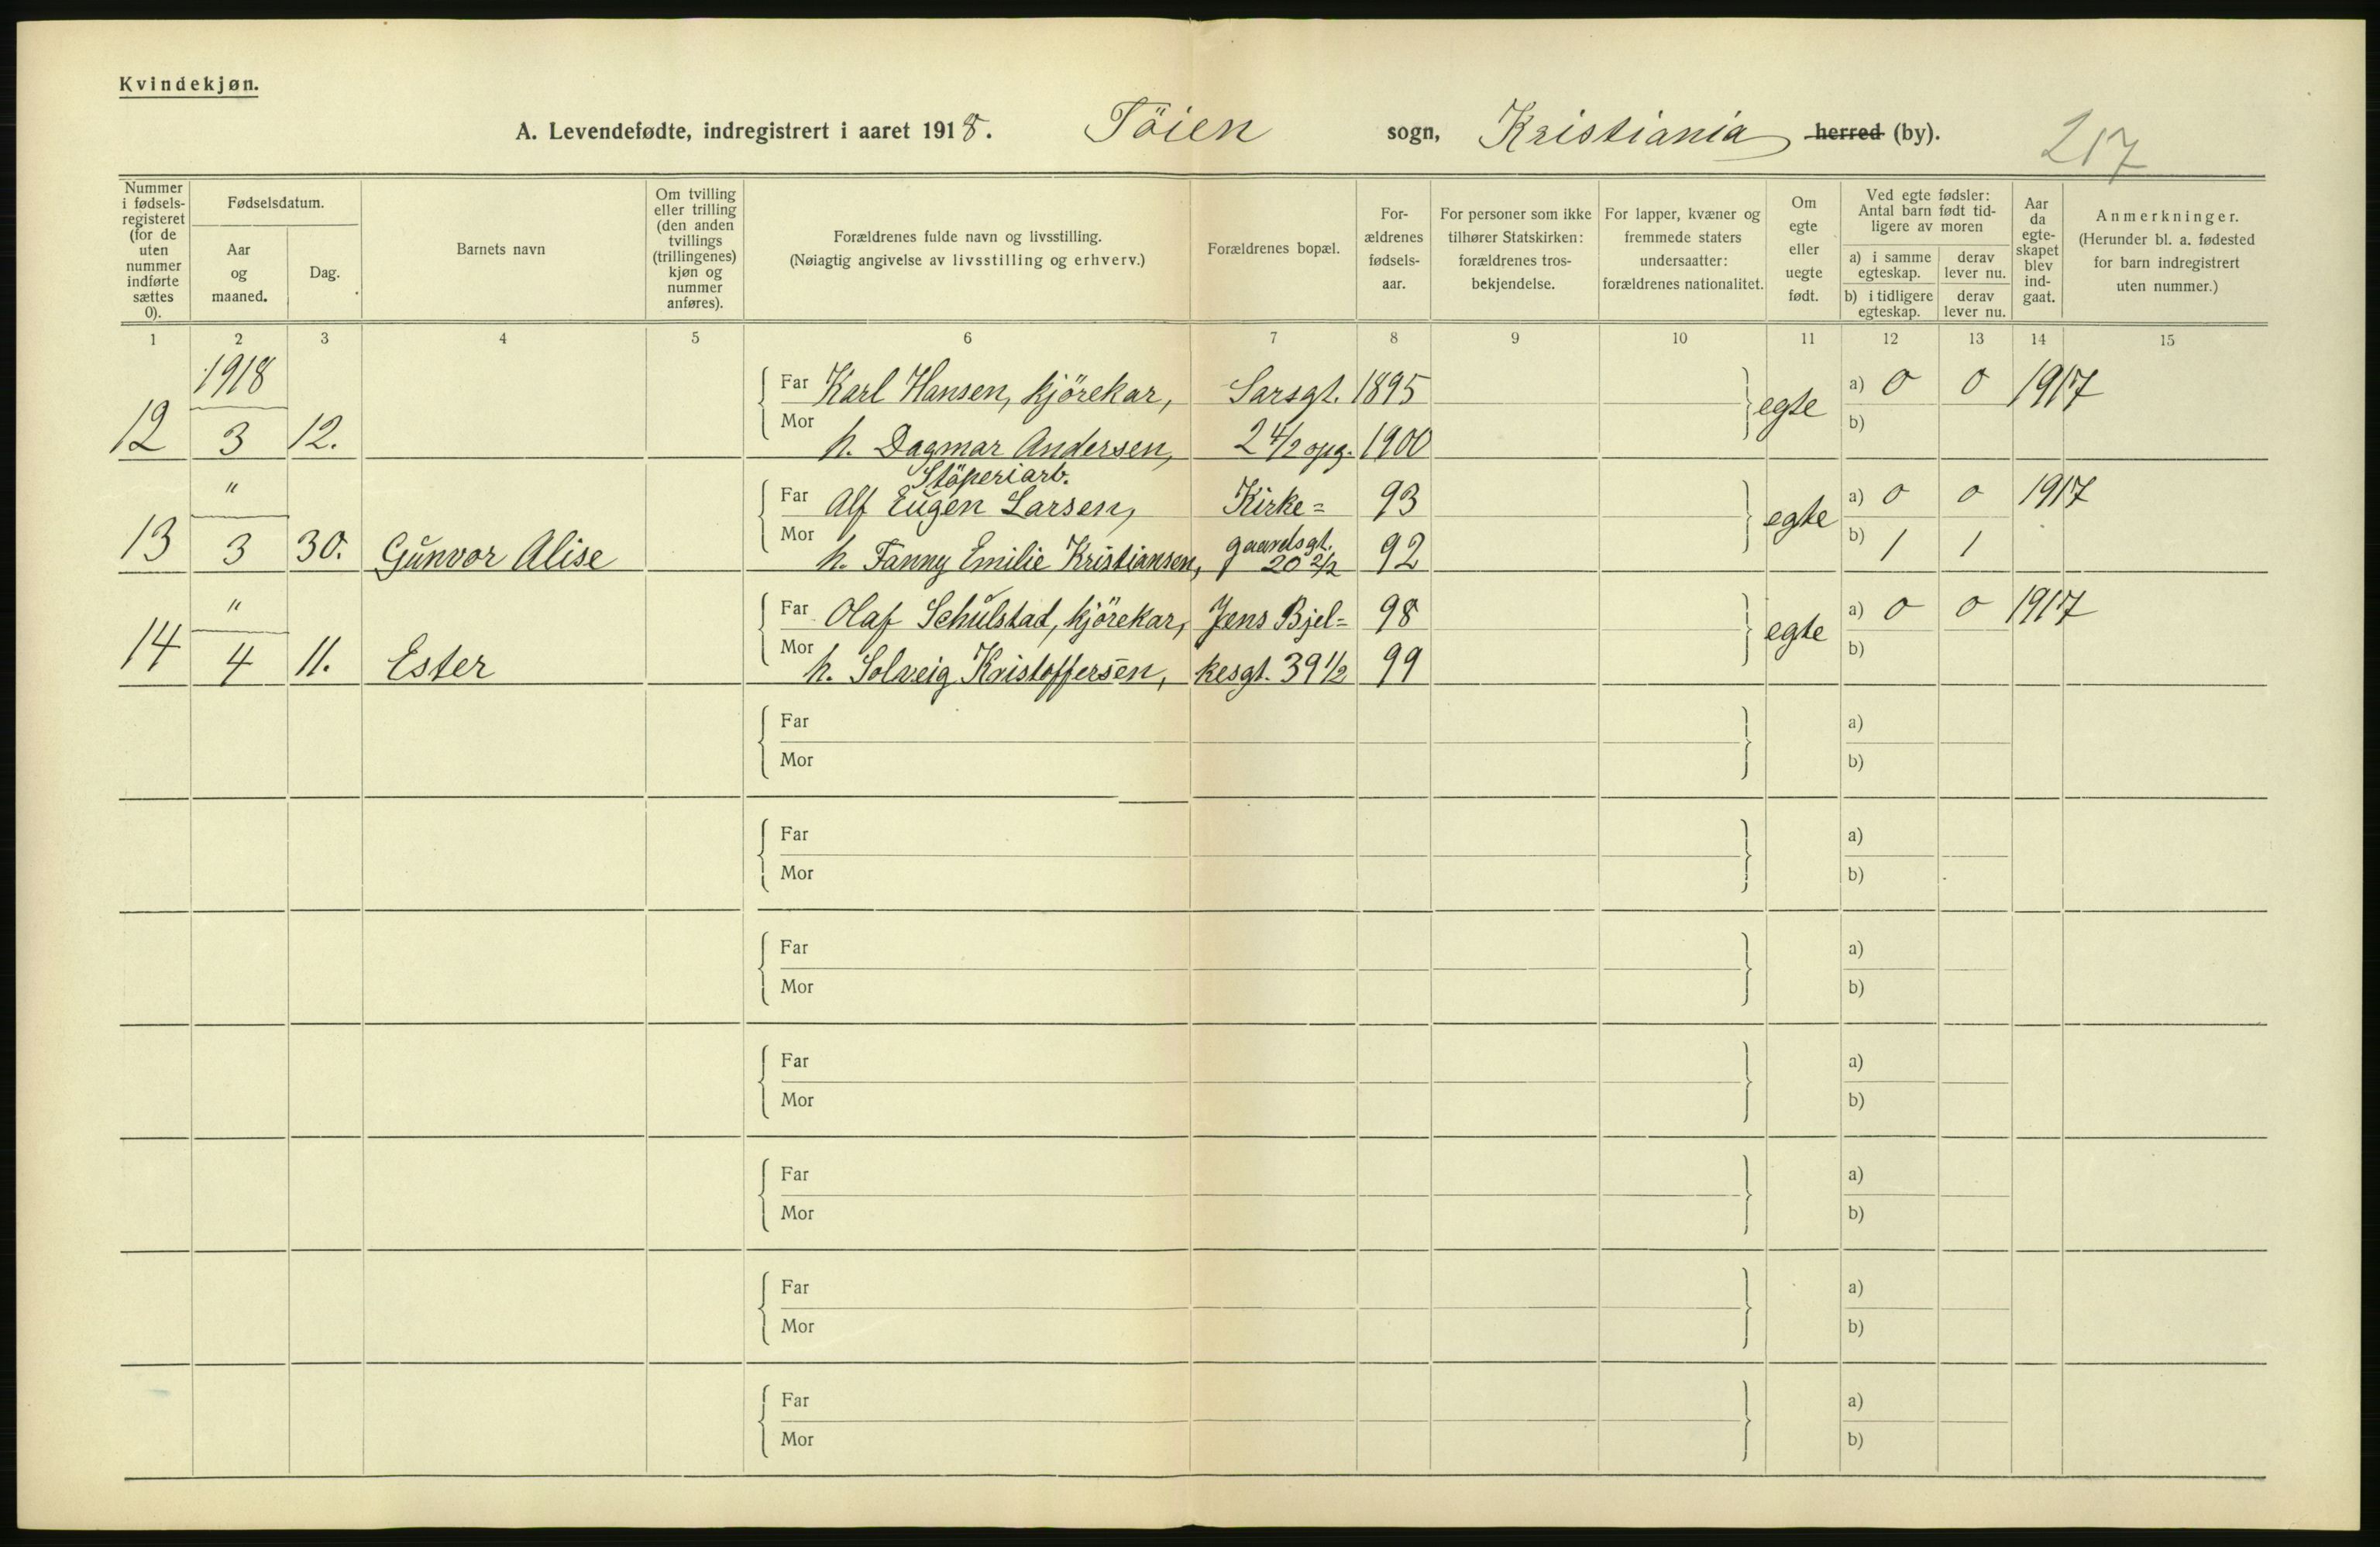 Kvindekjøn.
A. Levendefødte, indregistrert i aaret 1918. Töien sogn, Kristiania herred (by). 217
Nummer i fødsels-registeret (for de uten nummer indførte sættes 0).
Fødselsdatum.
Aar og maaned.
Dag.
Barnets navn
Om tvilling eller trilling (den anden tvillings (trillingenes) kjøn og nummer anføres).
Forældrenes fulde navn og livsstilling.
(Nøiagtig angivelse av livsstilling og erhverv.)
Forældrenes bopæl.
For-ældrenes fødsels-aar.
For personer som ikke tilhører Statskirken: forældrenes tros-bekjendelse.
For lapper, kvæner og fremmede staters undersaatter: forældrenes nationalitet.
Om egte eller uegte født.
Ved egte fødsler: Antal barn født tid-ligere av moren
a) i samme egteskap.
derav lever nu.
b) i tidligere egteskap.
derav lever nu.
Aar da egte-skapet blev ind-gaat.
Anmerkninger.
(Herunder bl. a. fødested for barn indregistrert uten nummer.)
1 2 3 4 5 6 7 8 9 10 11 12 13 14 15
1918
Far Karl Hansen, kjörekar, Sarsgt. 1895 egte a) 0 0 1917
12 3 12. Mor h. Dagmar Andersen, 2 4/2 opg. 1900 b)
Støperiarb.
" Far Alf Eugen Larsen, Kirke= 93 egte a) 0 0 1917
13 3 30. Gunvor Alise Mor h. Fanny Emilie Kristiansen, gaardsgt. 20 2/2 92 b) 1 1
" Far Olaf Schulstad, kjörekar, Jens Bjel= 98 egte a) 0 0 1917
14 4 11. Ester Mor h. Solveig Kristoffersen, kesgt. 39 1/2 99 b)
Far a)
Mor b)
Far a)
Mor b)
Far a)
Mor b)
Far a)
Mor b)
Far a)
Mor b)
Far a)
Mor b)
Far a)
Mor b)